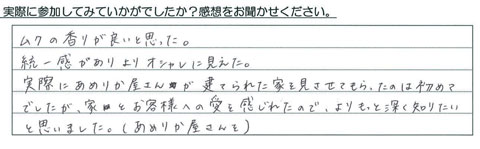 実際に参加してみていかがでしたか？感想をお聞かせください。
ムクの香りが良いと思った。
統一感がありよりオシャレに見えた。
実際にあめりか屋さんが建てられた家を見させてもらったのは初めて
でしたが、家とお客様への愛を感じれたので、よりもっと深く知りたい
と思いました。（あめりか屋さんを）